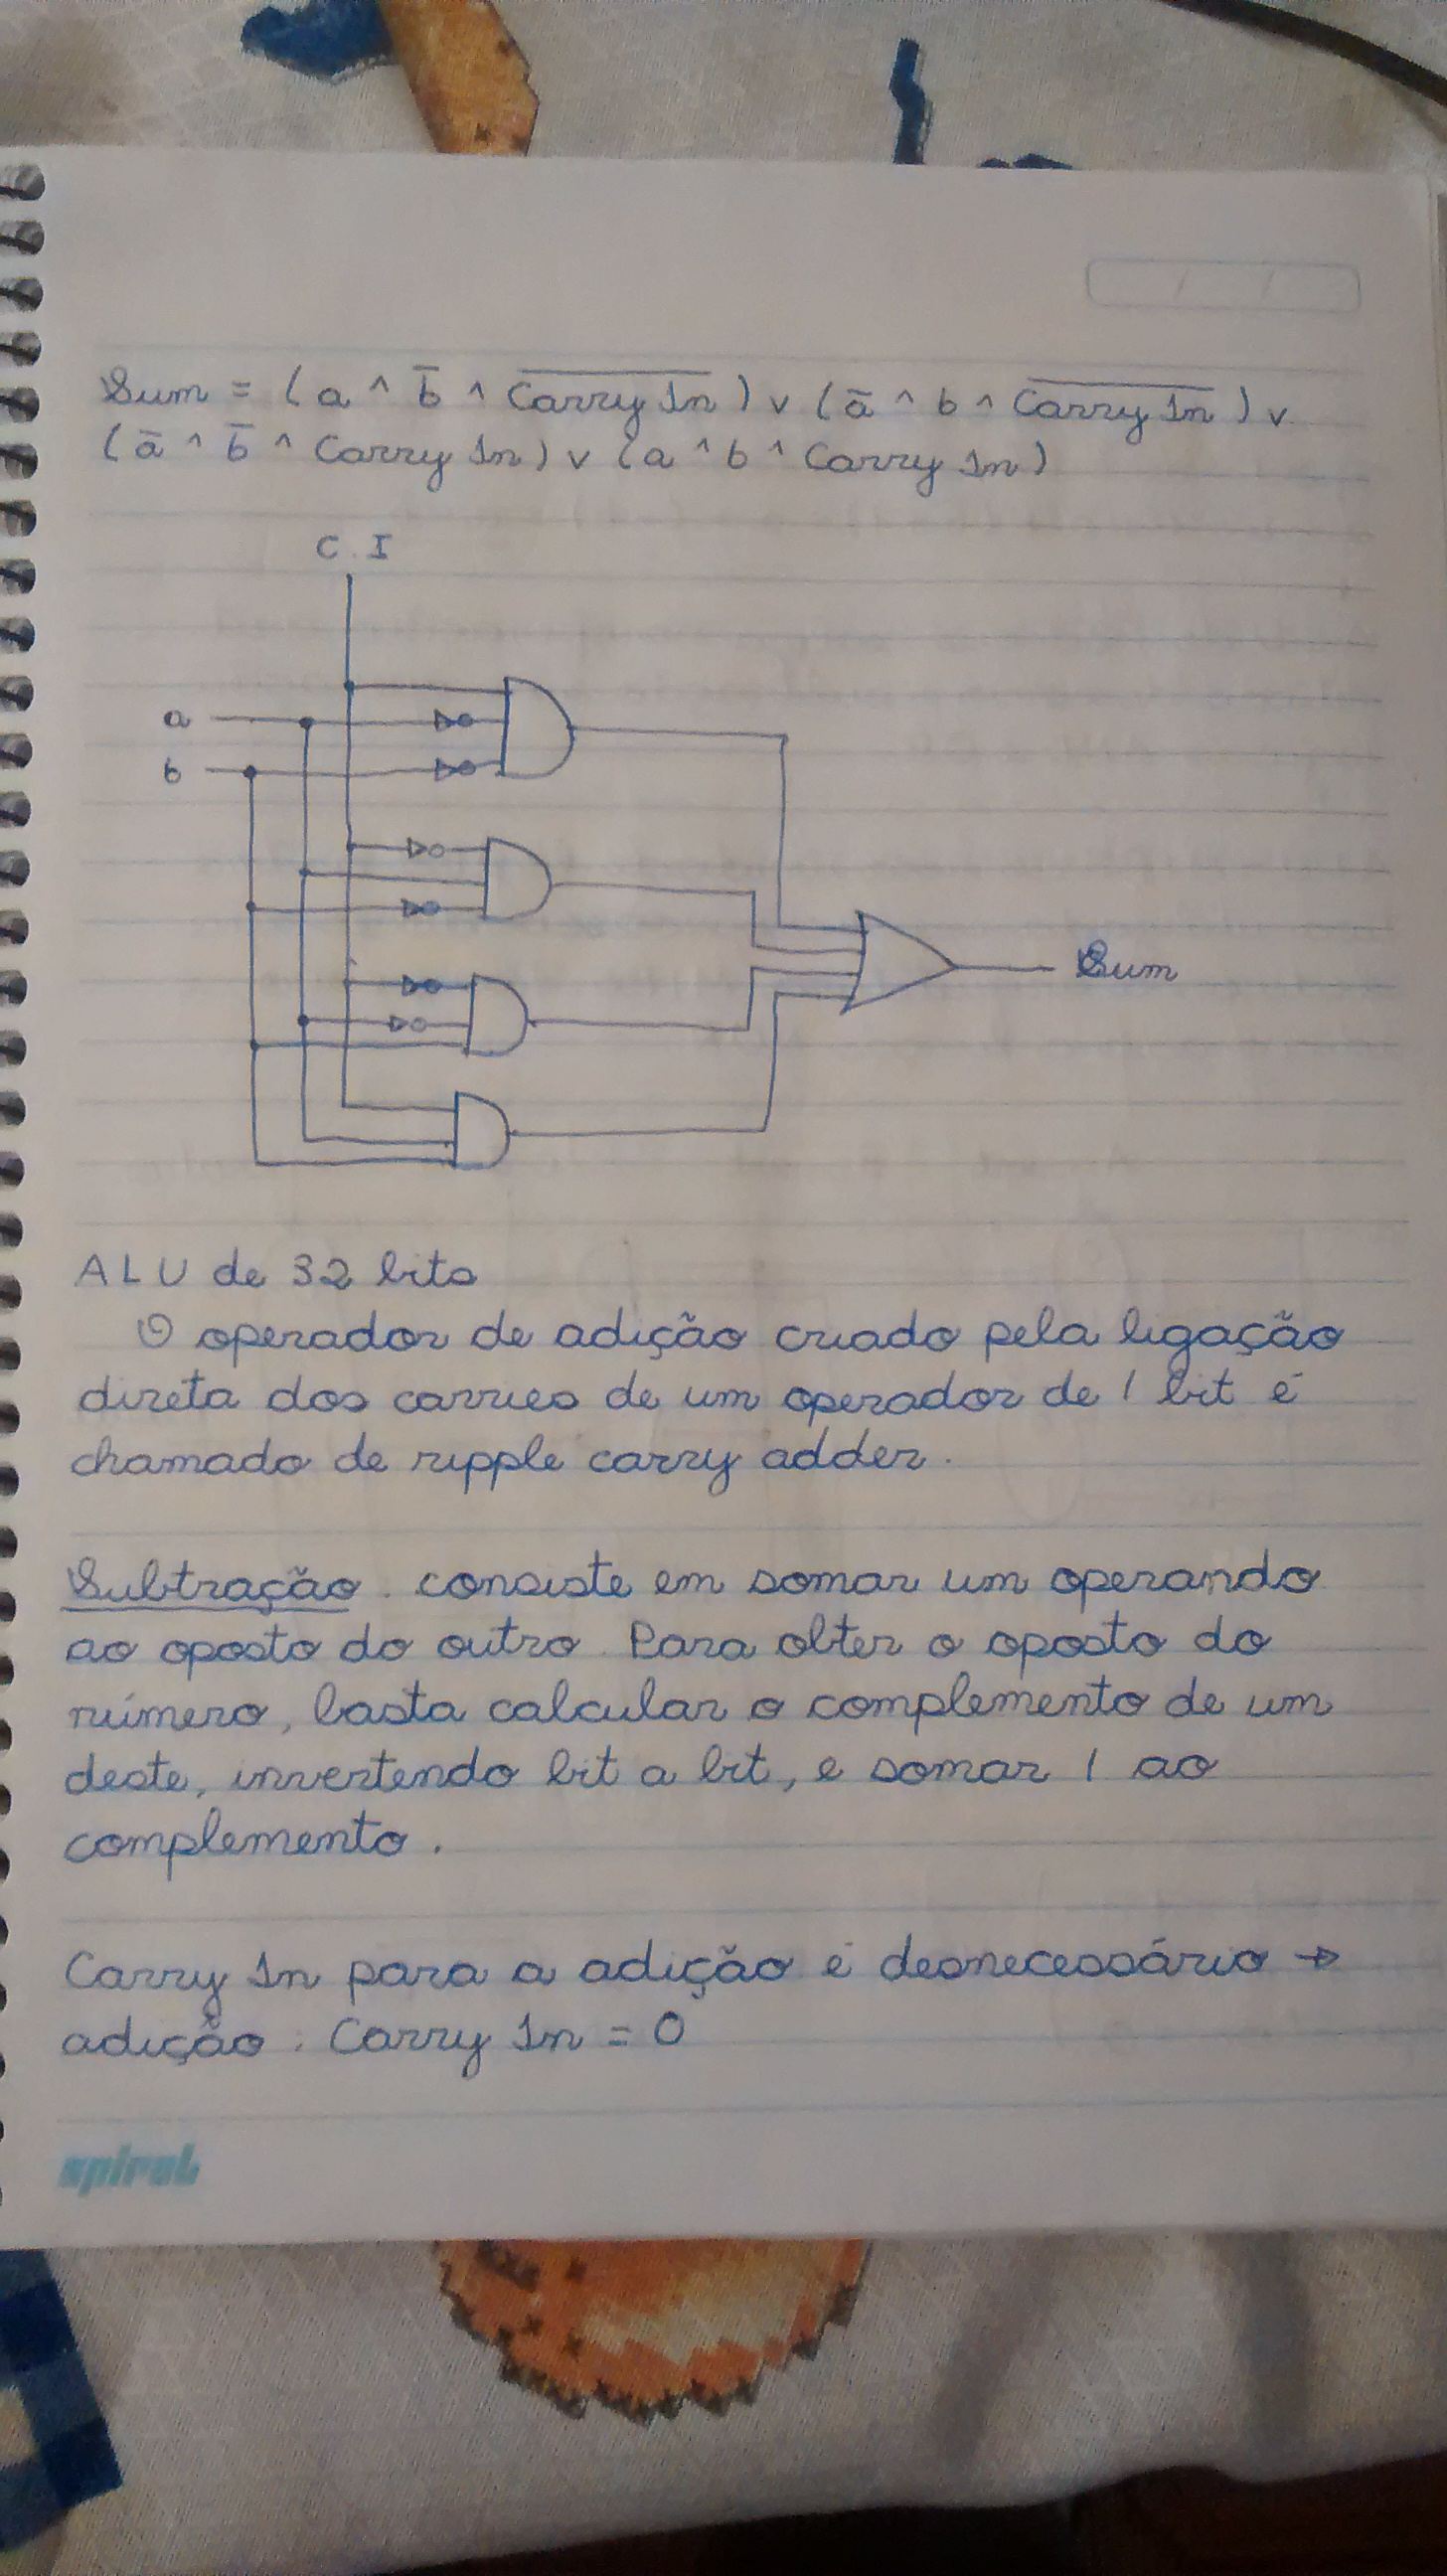 Sum = (a ^ b̅ ^ C̅a̅r̅r̅y̅ ̅I̅n̅) v (a̅ ^ b ^ C̅a̅r̅r̅y̅ ̅I̅n̅) v
(a̅ ^ b̅ ^ Carry In) v (a ^ b ^ Carry In)
C.I
a
b
Sum
ALU de 32 bits
O operador de adição criado pela ligação
direta dos carries de um operador de 1 bit é
chamado de ripple carry adder.
Subtração: consiste em somar um operando
ao oposto do outro. Para obter o oposto do
número, basta calcular o complemento de um
deste, invertendo bit a bit, e somar 1 ao
complemento.
Carry In para a adição é desnecessário →
adição: Carry In = 0
spiral